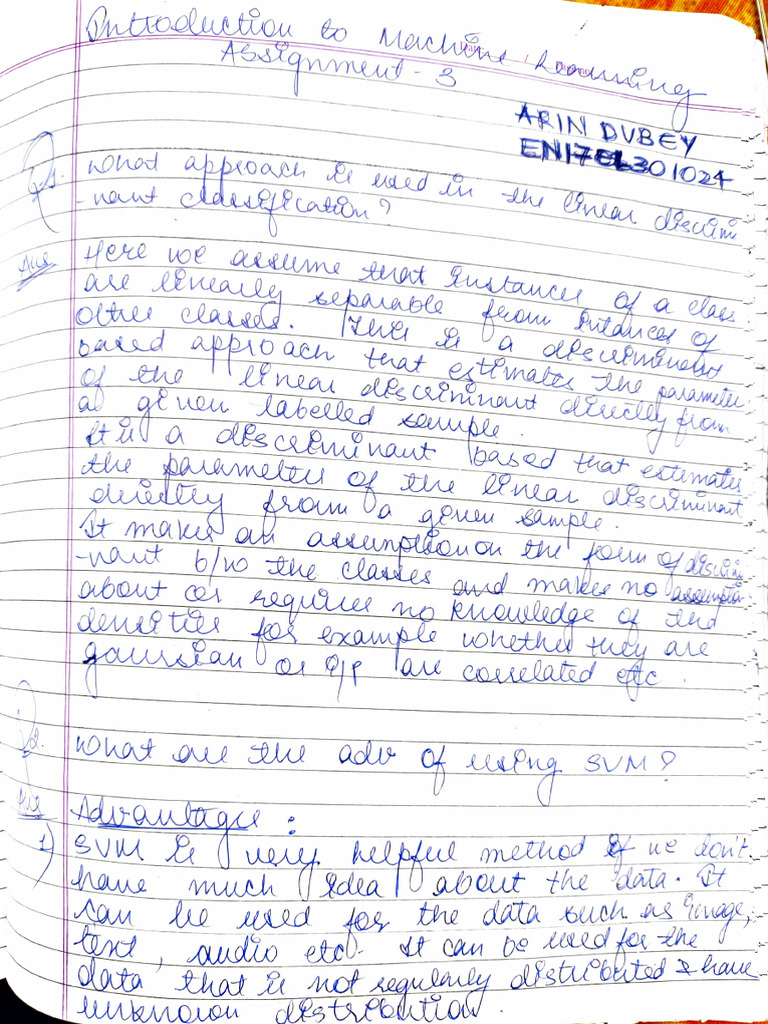 Introduction to Machine Learning
Assignment - 3
ARIN DUBEY
EN17EL301024
Q1. What approach is used in the linear discrimi
-nant classification?
Ans Here we assume that instances of a class
are linearly separable from intances of
other classes. This is a discriminant
based approach that estimates the parameter
of the linear discriminant directly from
a given labelled sample.
It is a discriminant based that estimates
the parameter of the linear discriminant
directly from a given sample.
It makes an assumption on the form of discrimi
-nant b/w the classes and makes no assumption
about or requires no knowledge of the
densities for example whether they are
gaussian or i/p are correlated etc.
Q2. What are the adv of using SVM?
Ans Advantage :
1) SVM is very helpful method if we don't
have much idea about the data. It
can be used for the data such as image,
text, audio etc. It can be used for the
data that is not regularly distributed & have
unknown distribution.